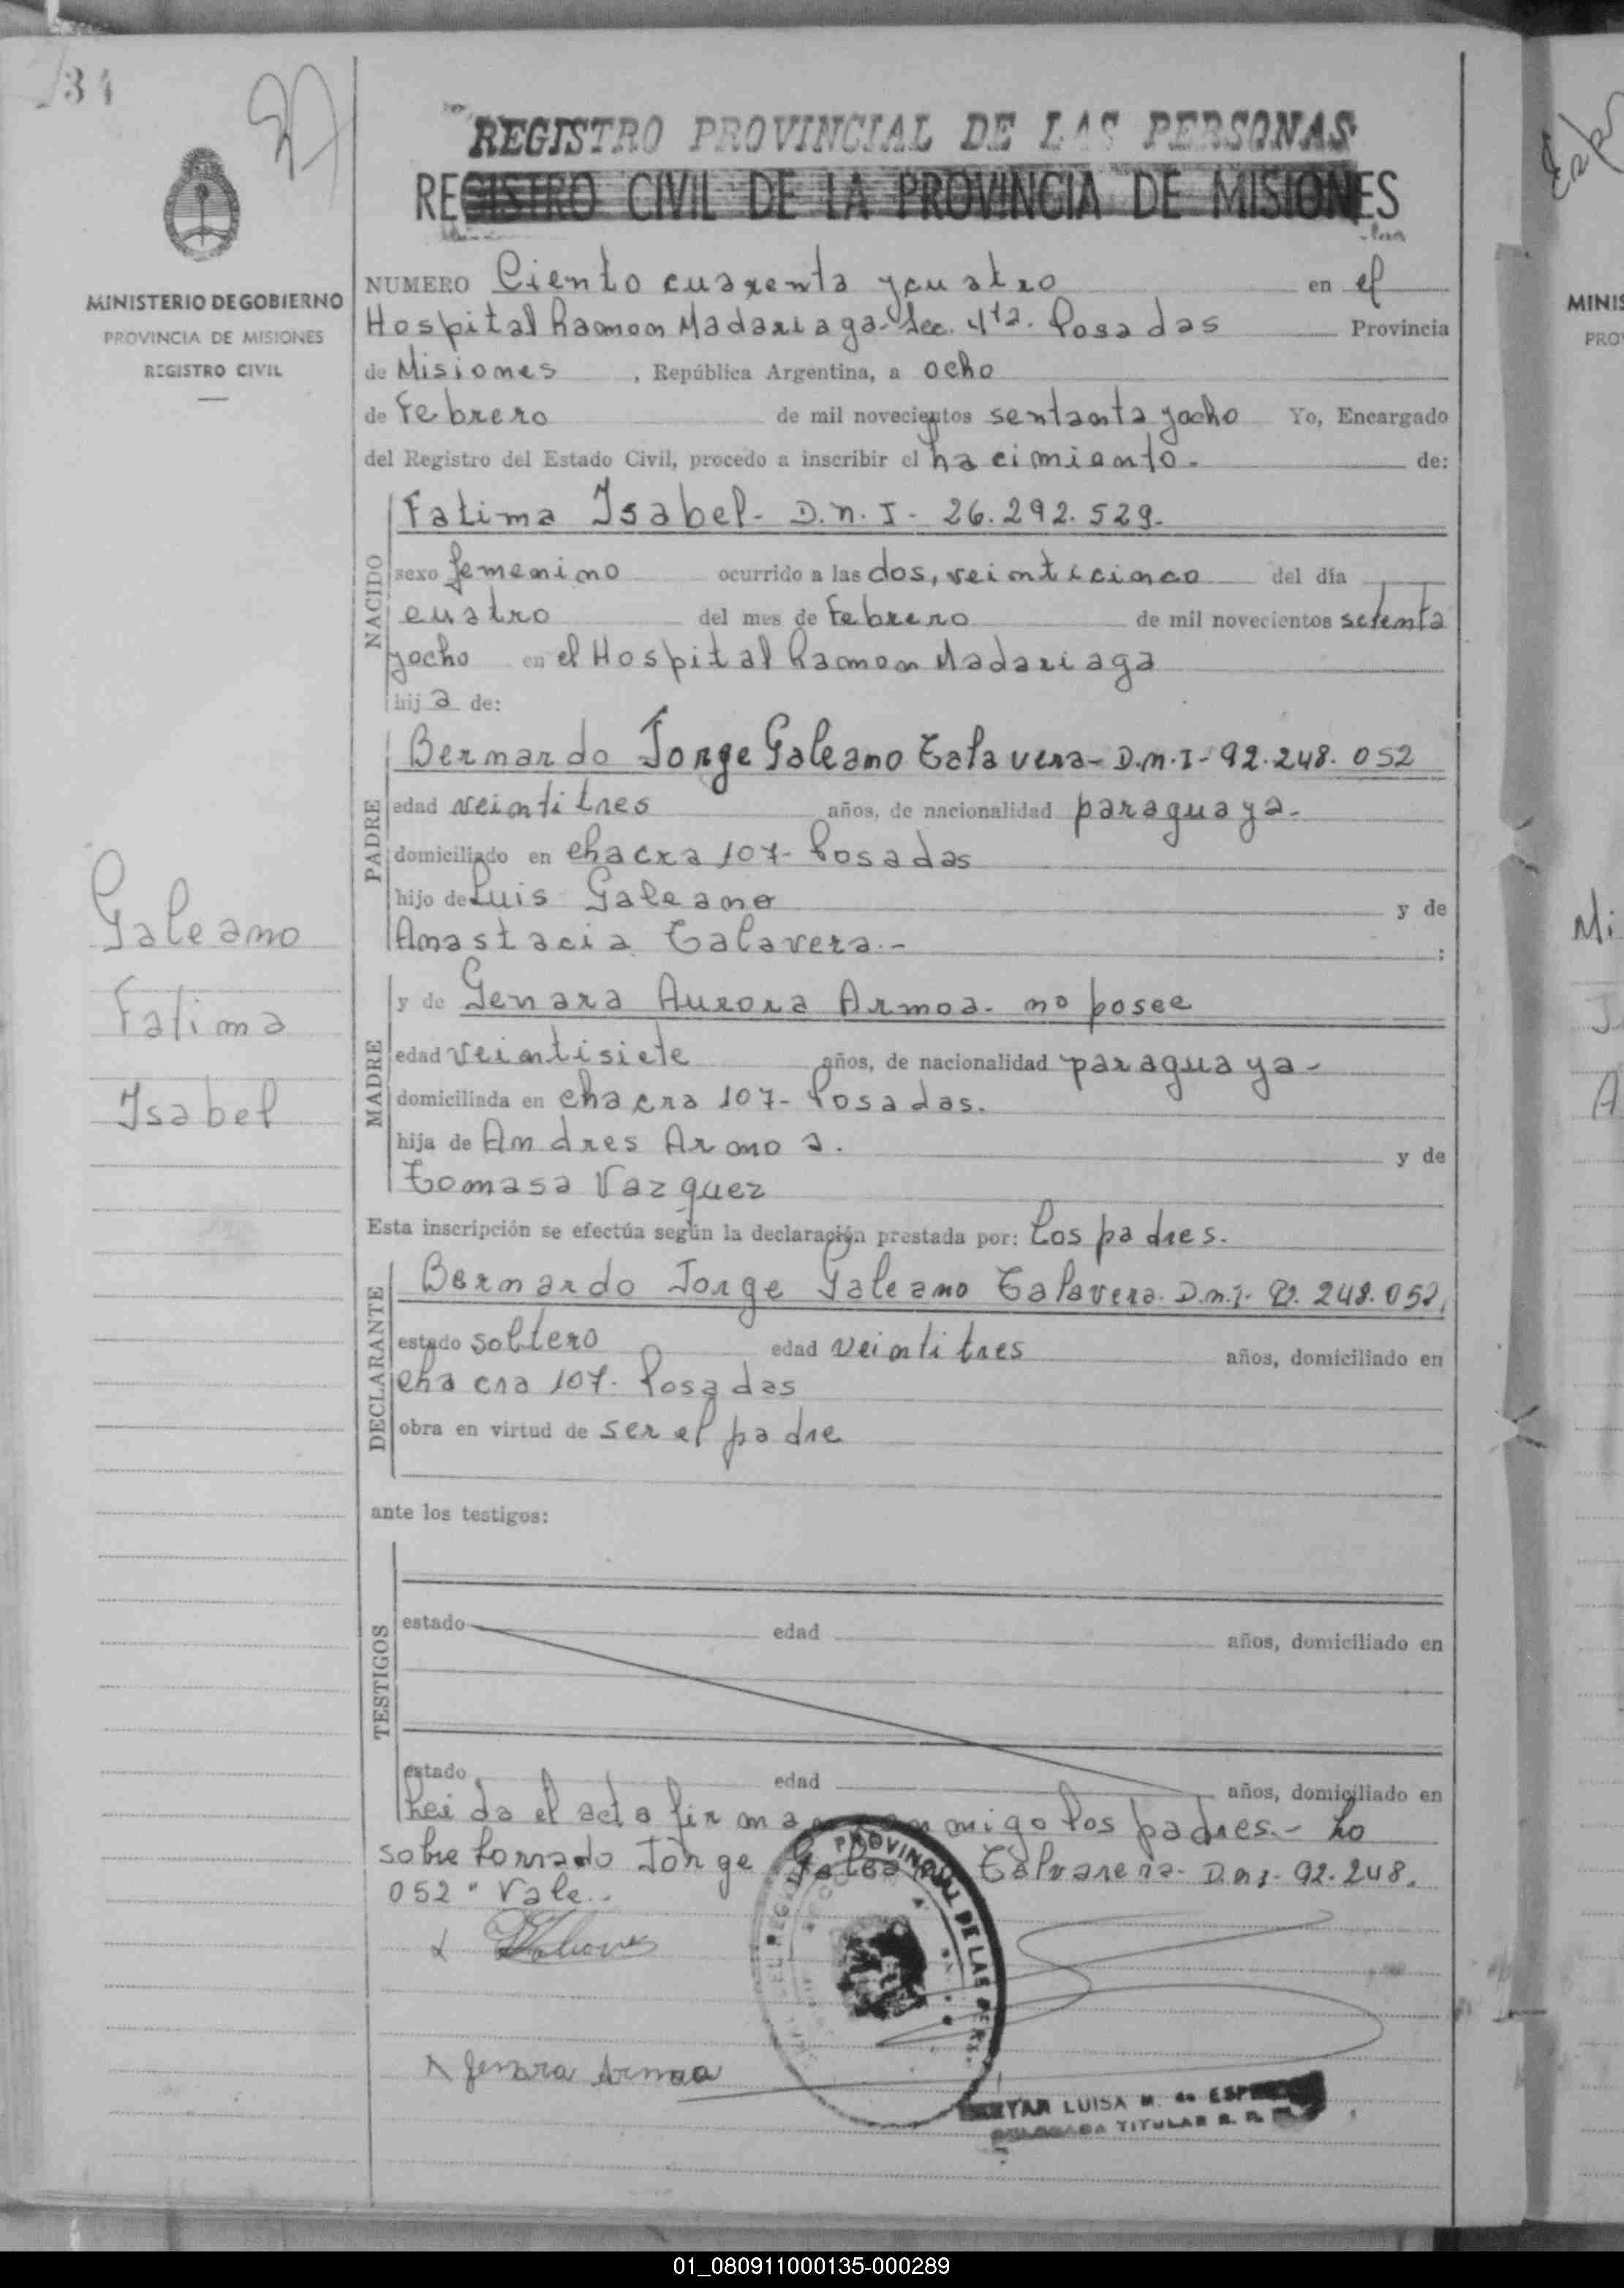 134
97
REGISTRO PROVINCIAL DE LAS PERSONAS
REGISTRO CIVIL DE LA PROVINCIA DE MISIONES
MINISTERIO DE GOBIERNO
PROVINCIA DE MISIONES
REGISTRO CIVIL
NUMERO Ciento cuarenta y cuatro en el
Hospital Ramon Madariaga-Sec. 4ta. Posadas Provincia
de Misiones , República Argentina, a ocho
de Febrero de mil novecientos sentanta y ocho Yo, Encargado
del Registro del Estado Civil, procedo a inscribir el nacimiento. de:
NACIDO
Fatima Isabel- D.N.I- 26.292.529-
sexo femenino ocurrido a las dos, veinticinco del día
cuatro del mes de Febrero de mil novecientos setenta
y ocho en el Hospital Ramon Madariaga
hij a de:
PADRE
Bernardo Jorge Galeano Talavera- D.N.I- 92.248.052
edad veintitres años, de nacionalidad paraguaya-
domiciliado en chacra 107- Posadas
hijo de Luis Galeano y de
Anastacia Talavera.- :
MADRE
y de Genara Aurora Armoa- no posee
edad veintisiete años, de nacionalidad paraguaya-
domiciliada en chacra 107- Posadas.
hija de Andres Armoa. y de
Tomasa Vazquez
Galeano
Fatima
Isabel
Esta inscripción se efectúa según la declaración prestada por: Los padres.
DECLARANTE
Bernardo Jorge Galeano Talavera- D.N.I- 92.248.052.
estado soltero edad veintitres años, domiciliado en
chacra 107- Posadas
obra en virtud de ser el padre
ante los testigos:
TESTIGOS
estado edad años, domiciliado en
estado edad años, domiciliado en
Leida el acta firman conmigo los padres.- Lo
sobre borrado Jorge Galeano Talvarera- D.N.I- 92.248.
052 " Vale.
PROVINCIAL DE LAS PERS.
x Genara Armoa
LUISA M. de
TITULAR R. P.
Mi
MINIS
PRO
01_080911000135-000289